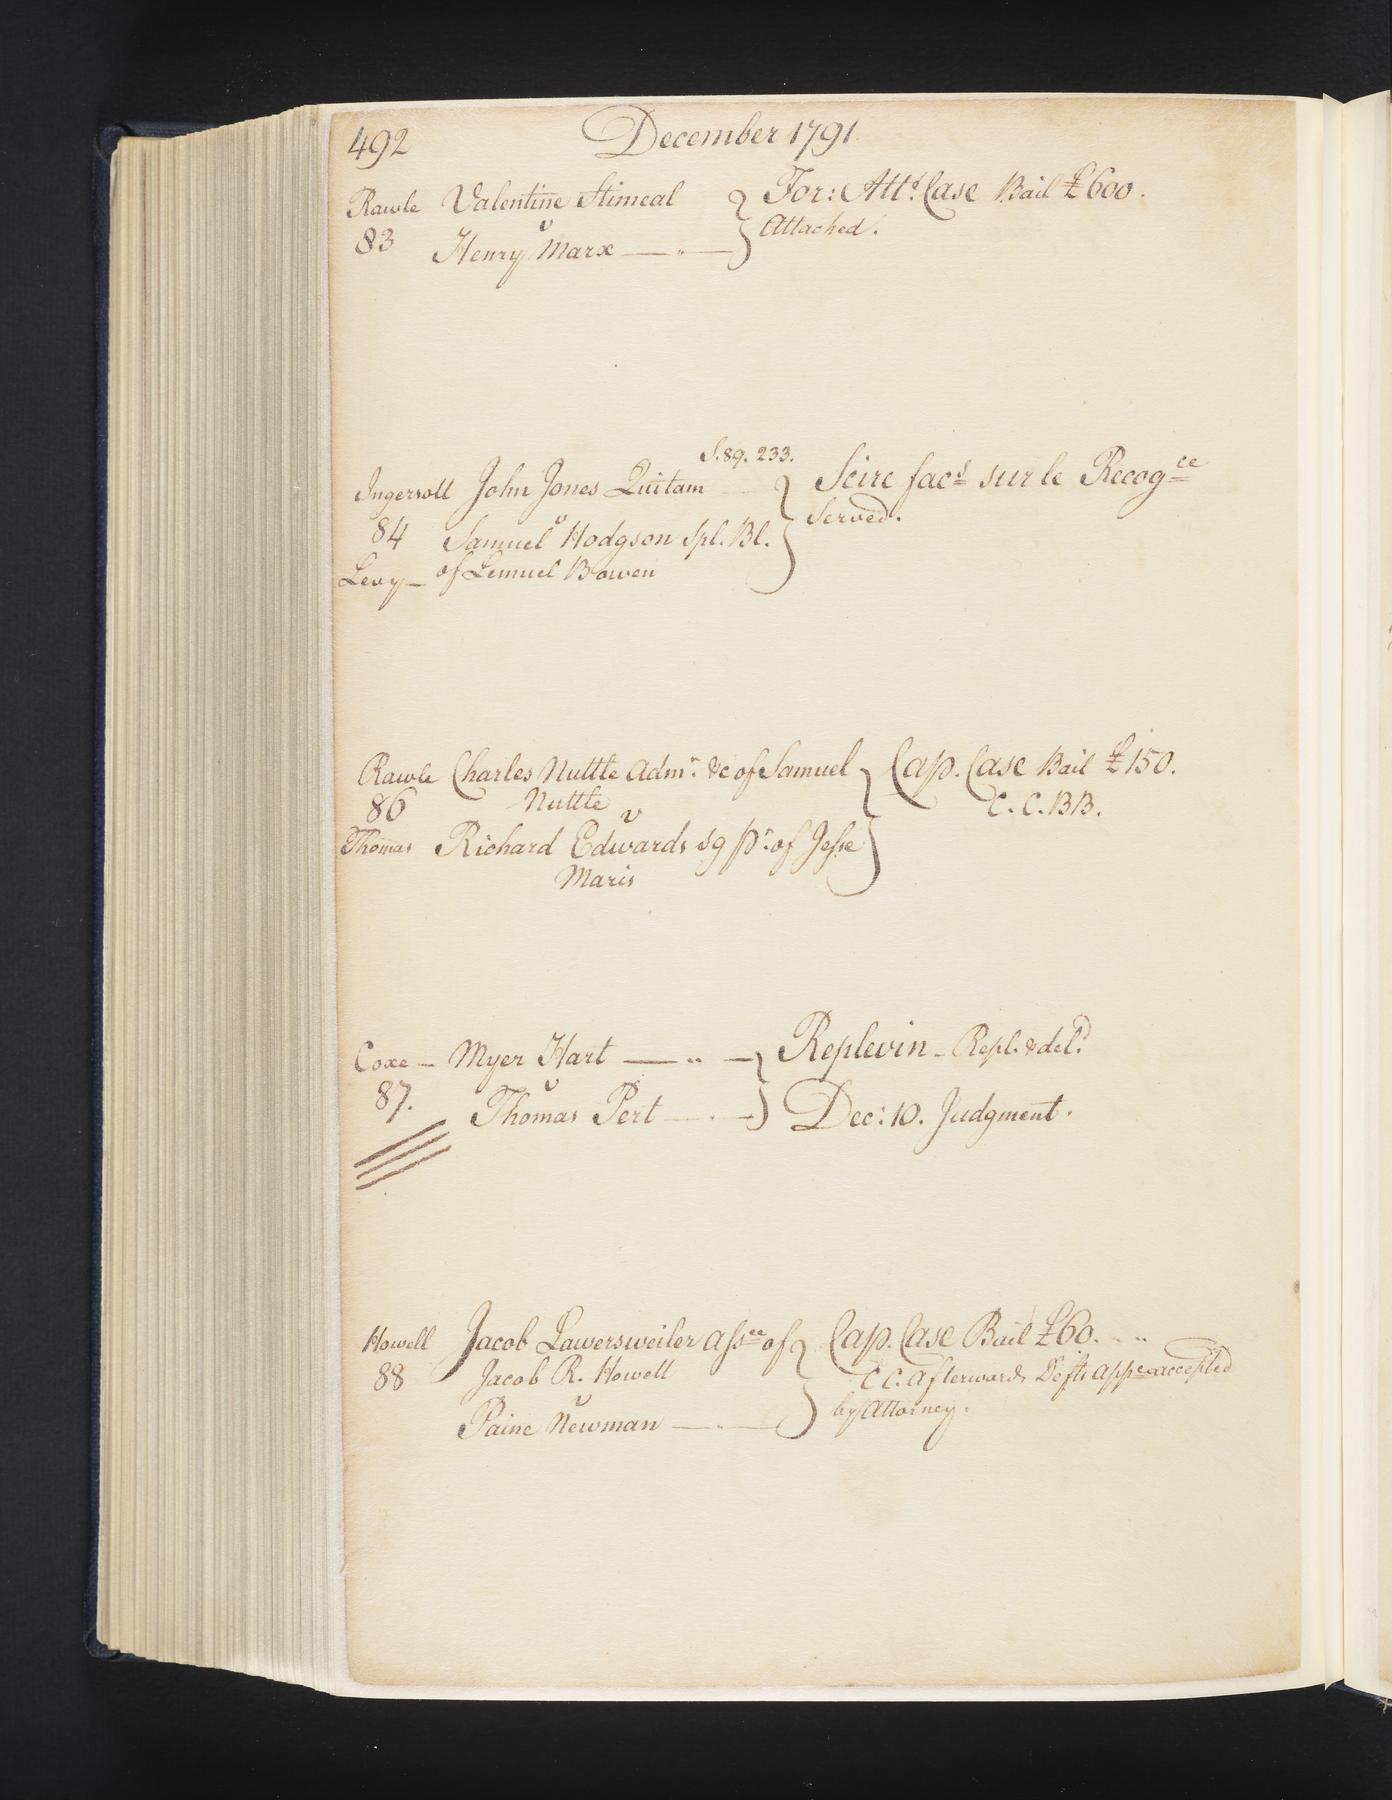 492 December 1791.
Rawle Valentine Stimeal } For: Att.t Case Bail £600.
v Attached.
83 Henry Marx
S. 89. 233.
Ingersoll John Jones Quitam } Scire fac.s sur le Recog.ce
v Served.
84 Samuel Hodgson Spl. Bl.
Levy of Lemuel Bowen
Rawle Charles Nuttle Adm.r &c of Samuel } Cap. Case Bail £150.
86 Nuttle C. C. B B.
v
Thomas Richard Edwards sg p.r of Jesse
Maris
Coxe Myer Hart } Replevin - Repl. & del.d
v
87. Thomas Pert Dec: 10. Judgment.
Howell Jacob Lawersweiler ass.ee of } Cap. Case Bail £60.
88 Jacob R. Howell C C. afterwards Defts app.ce accepted
v by Attorney.
Paine Newman